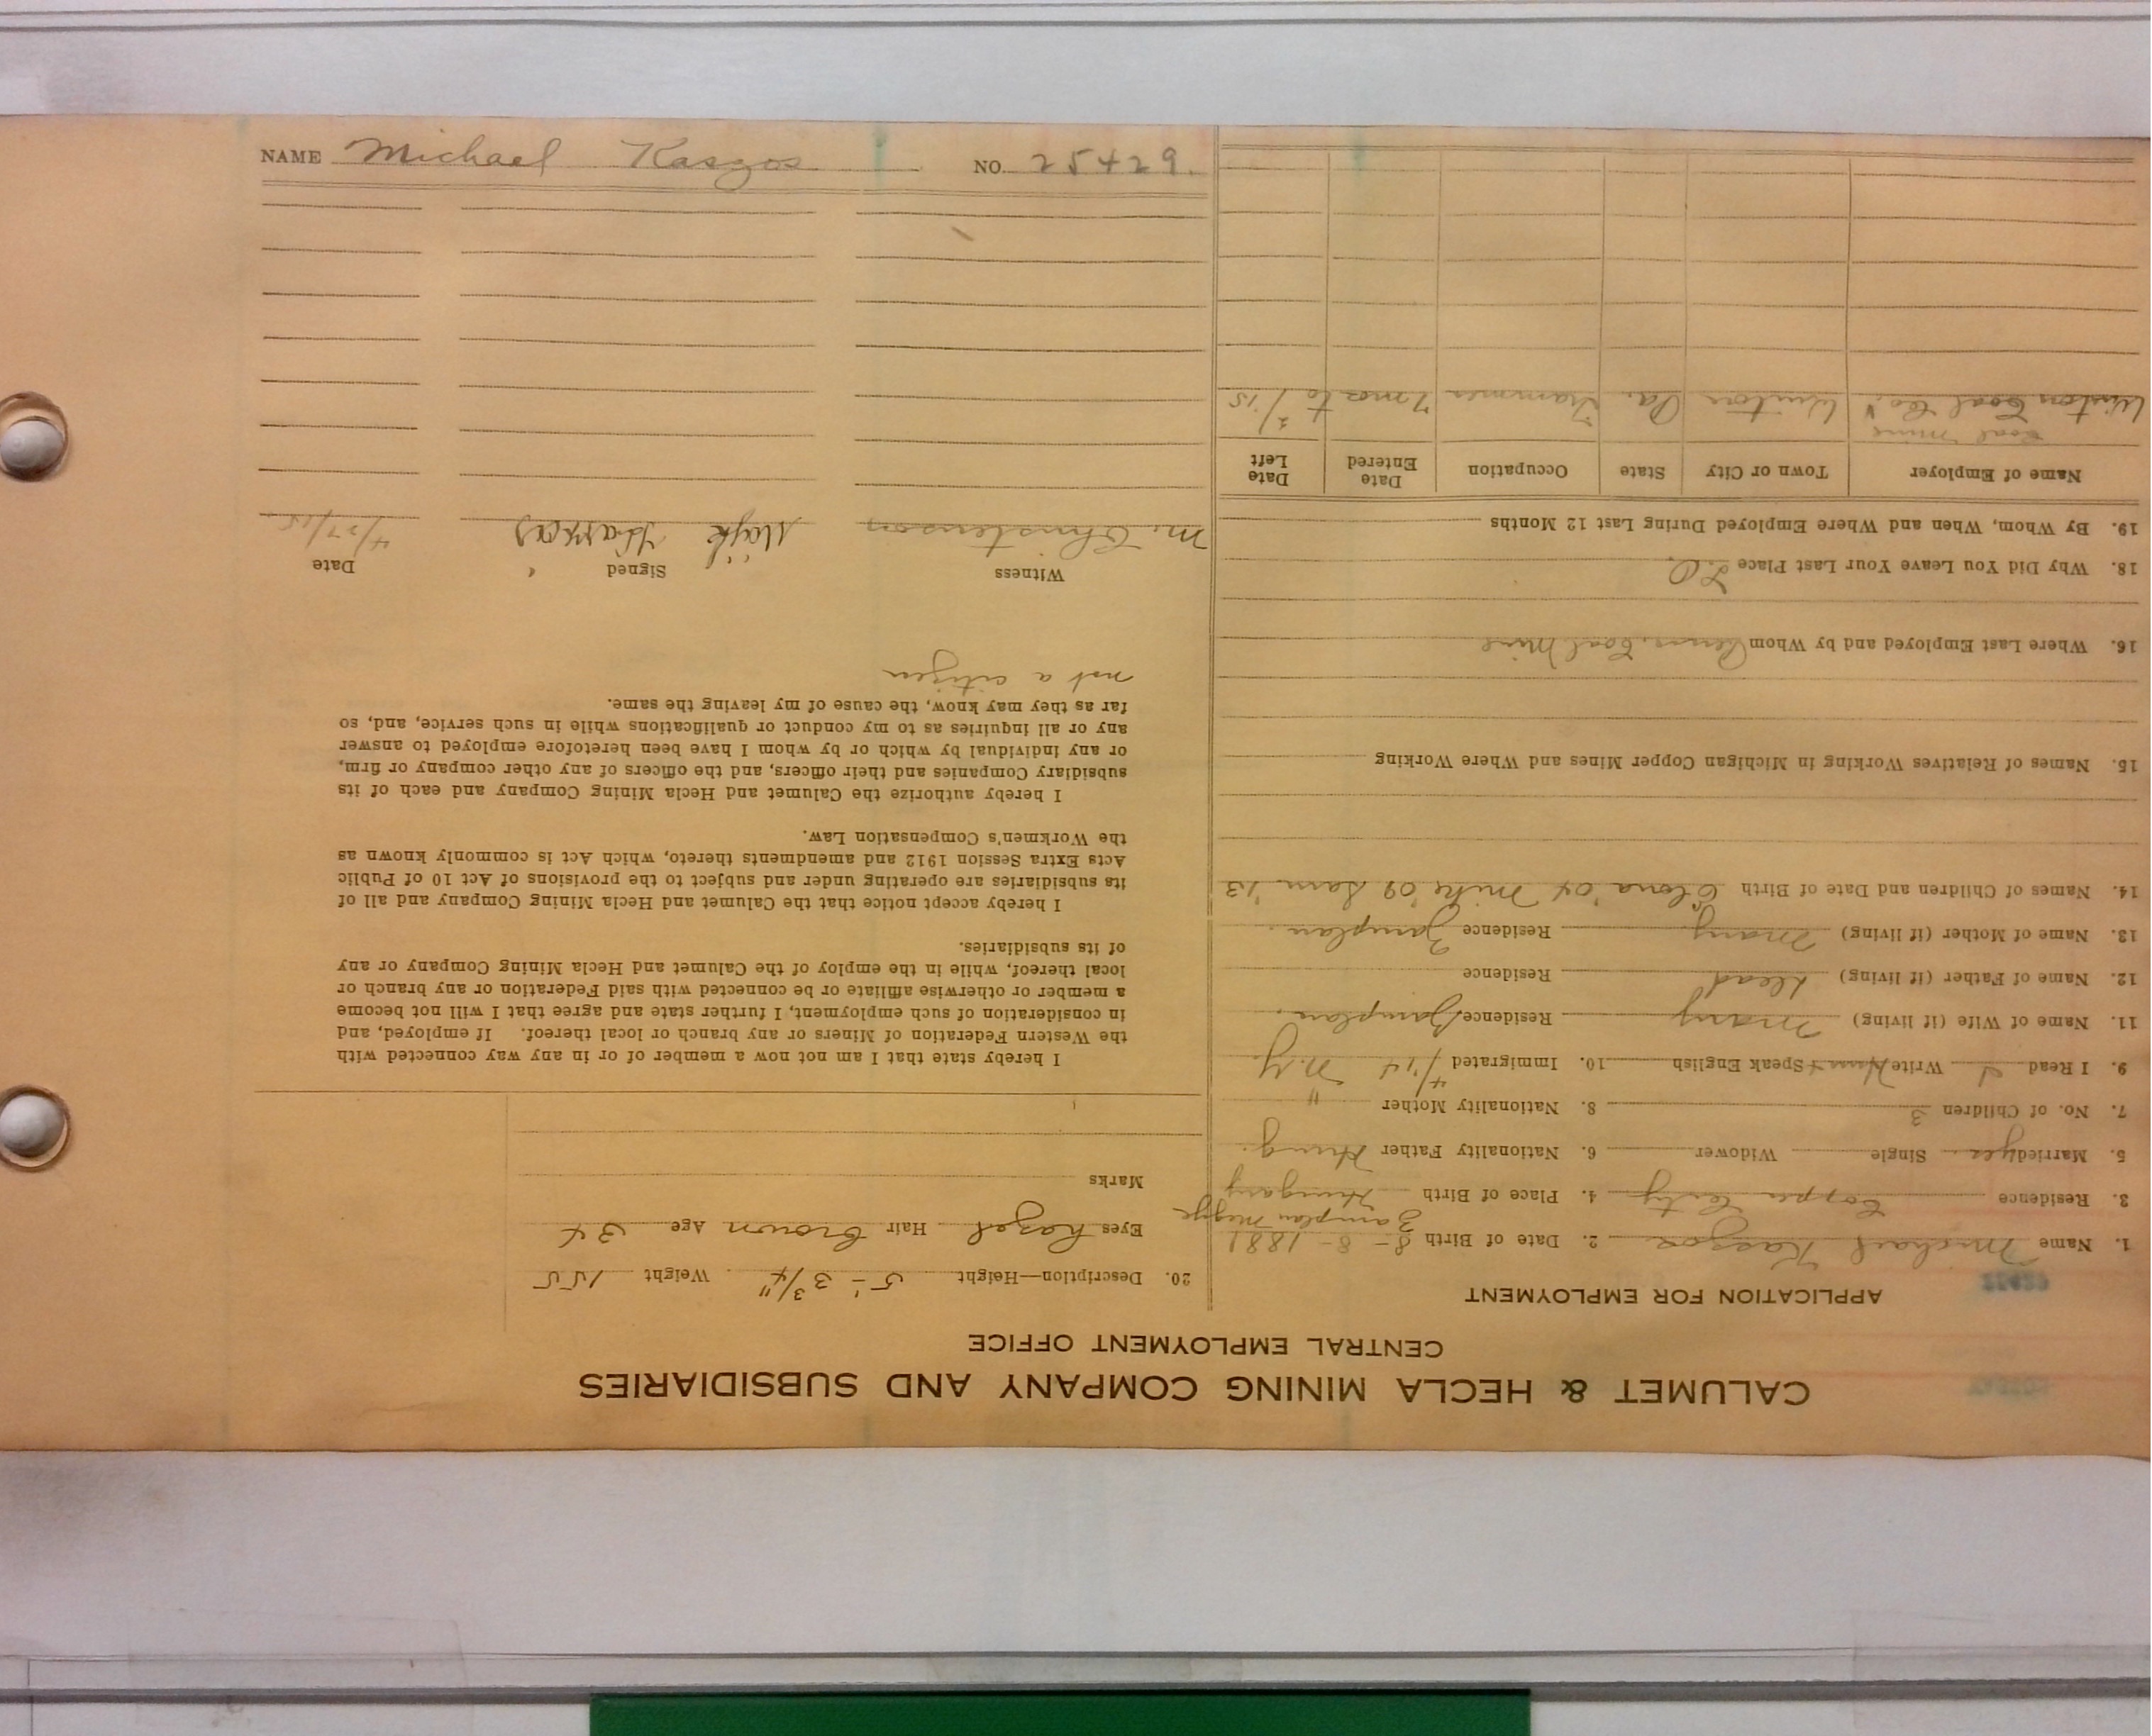 NAME Michael Kaszos NO. 25429.
CALUMET & HECLA MINING COMPANY AND SUBSIDIARIES
CENTRAL EMPLOYMENT OFFICE
APPLICATION FOR EMPLOYMENT
1. Name Michael Kaszos 2. Date of Birth 8-8-1881
Zamplan Megye
3. Residence Copper City 4. Place of Birth Hungary
5. Married yes. Single Widower 6. Nationality Father Hung.
7. No. of Children 3 8. Nationality Mother "
9. I Read Write Speak English 10. Immigrated 4/14 N.Y.
11. Name of Wife (if living) Mary Residence Zamplan.
12. Name of Father (if living) Dead Residence
13. Name of Mother (if living) Mary Residence Zamplan.
14. Names of Children and Date of Birth '04 Mike '09 Sam '13
15. Names of Relatives Working in Michigan Copper Mines and Where Working
16. Where Last Employed and by Whom Penn. Coal Mine
18. Why Did You Leave Your Last Place
19. By Whom, When and Where Employed During Last 12 Months
Name of Employer Town or City State Occupation Date Entered Date Left
Coal Mine
Winton Coal Co. Winton Pa. Trammer 7 mos to 2/15
20. Description—Height 5'-3 3/4" Weight 155
Eyes hazel Hair brown Age 34
Marks
I hereby state that I am not now a member of or in any way connected with
the Western Federation of Miners or any branch or local thereof. If employed, and
in consideration of such employment, I further state and agree that I will not become
a member or otherwise affiliate or be connected with said Federation or any branch or
local thereof, while in the employ of the Calumet and Hecla Mining Company or any
of its subsidiaries.
I hereby accept notice that the Calumet and Hecla Mining Company and all of
its subsidiaries are operating under and subject to the provisions of Act 10 of Public
Acts Extra Session 1912 and amendments thereto, which Act is commonly known as
the Workmen's Compensation Law.
I hereby authorize the Calumet and Hecla Mining Company and each of its
subsidiary Companies and their officers, and the officers of any other company or firm,
or any individual by which or by whom I have been heretofore employed to answer
any or all inquiries as to my conduct or qualifications while in such service, and, so
far as they may know, the cause of my leaving the same.
not a citizen
Witness Signed Date
M. Christenson 4/27/15